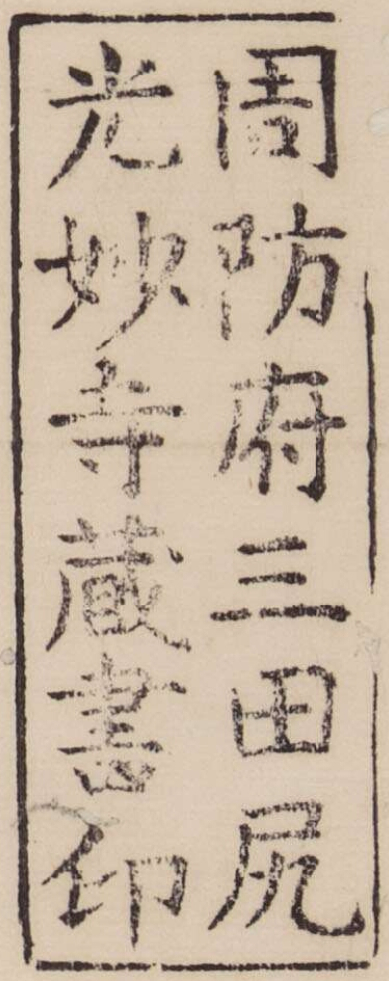 周防府三田尻
光妙寺蔵書印